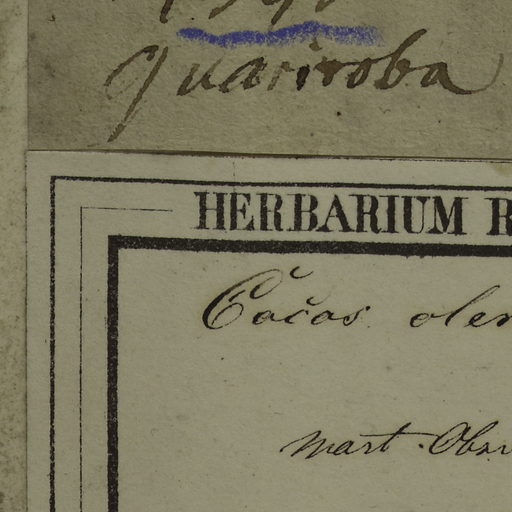 Guariroba
HERBARIUM
Cocos
Mart. Obs